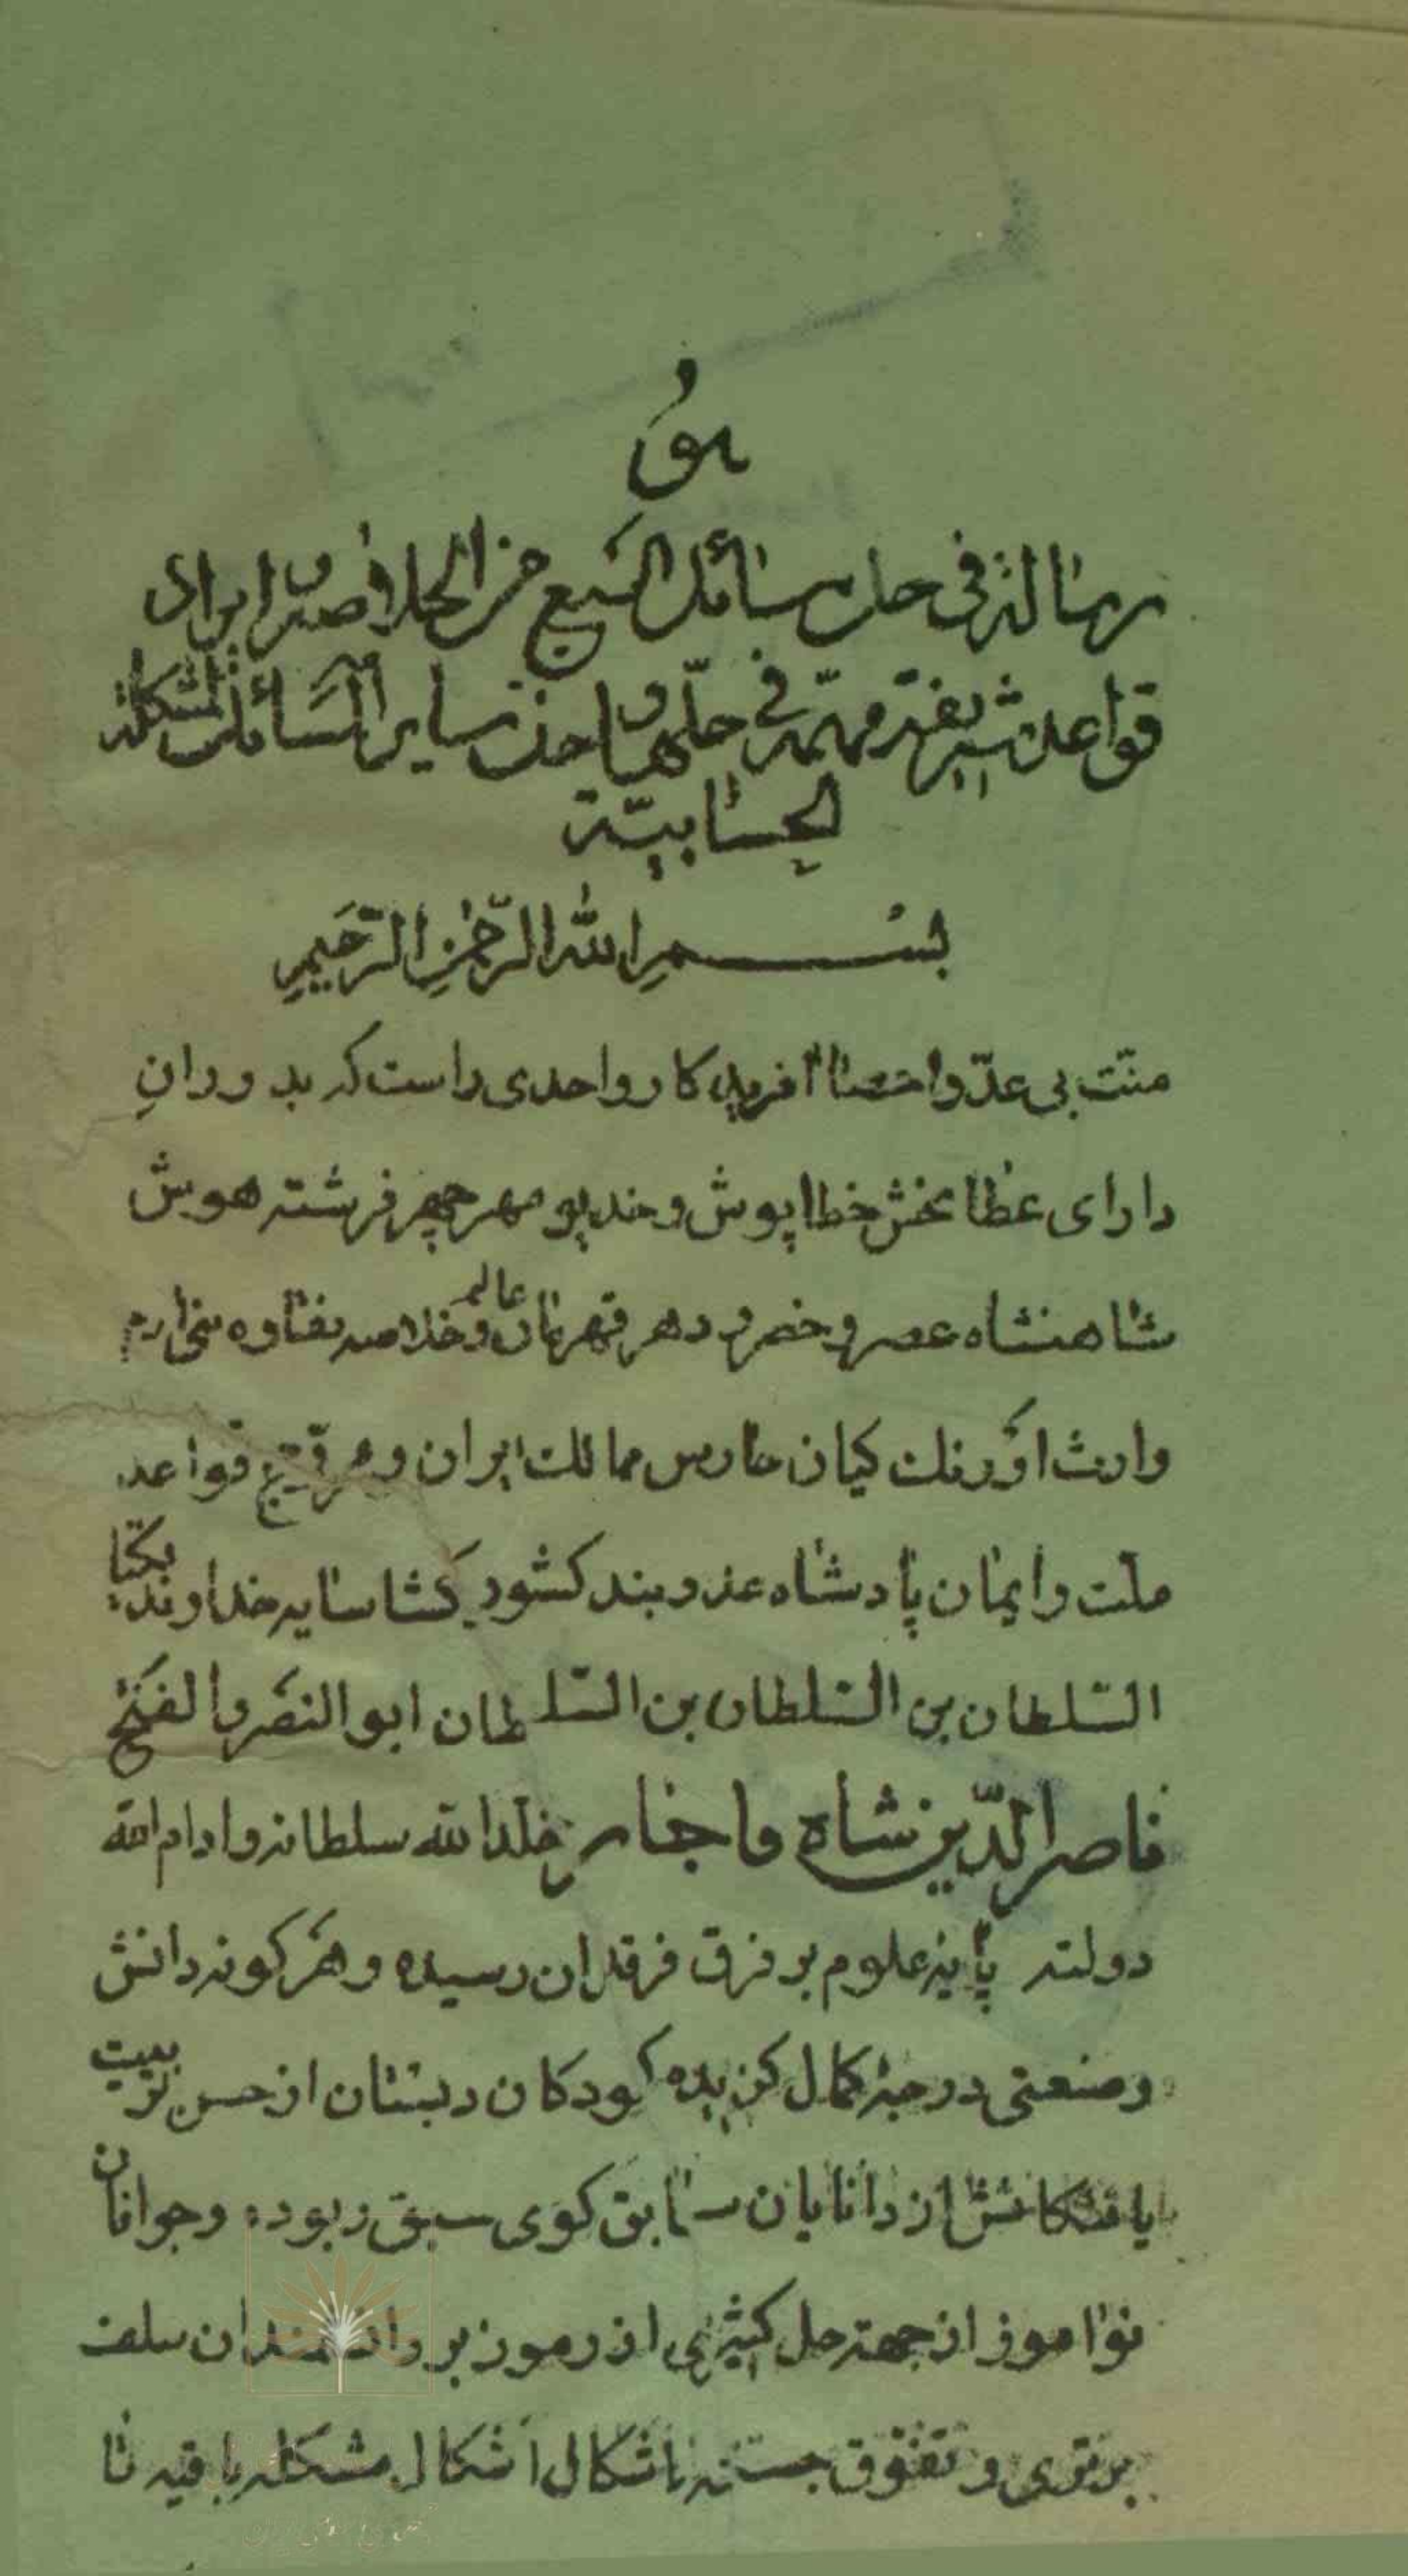 هو
رسالة فی حل مسائل السبع من الخلاصة و ایراد
قواعد شریفة مهمّة فی حلّها و اخذ سایر المسائل المشکلة
الحسابیّة
بسم الله الرّحمن الرّحیم
منّت بی عدّ و احصا آفریدکار واحدی راست که بدوران
دارای عطا بخش خطا پوش و خدیو مهر چهر فرشته هوش
شاهنشاه عصر و خسرو دهر قهرمان عالم و خلاصه نقاوه بنی آدم
وارث اورنك کیان حارس ممالك ایران و مروّج قواعد
ملّت و ایمان پادشاه عدو بند کشور کشا سایه خداوند یکتا
السّلطان بن السّلطان بن السّلطان ابو النّصر و الفتح
ناصر الدّین شاه قاجار خلّد الله سلطانه و ادام الله
دولته پایه علوم بر فرق فرقدان رسیده و هر کونه دانش
و صنعتی درجه کمال کزیده کودکان دبستان از حسن تربیت
یافتکانش از دانایان سابق کوی سبق ربوده و جوانان
نوآموز از جهة حل کثیری از رموز بر دانشمندان سلف
برتری و تفوّق جسته تا اشکال اشکال مشکله باقیه تا